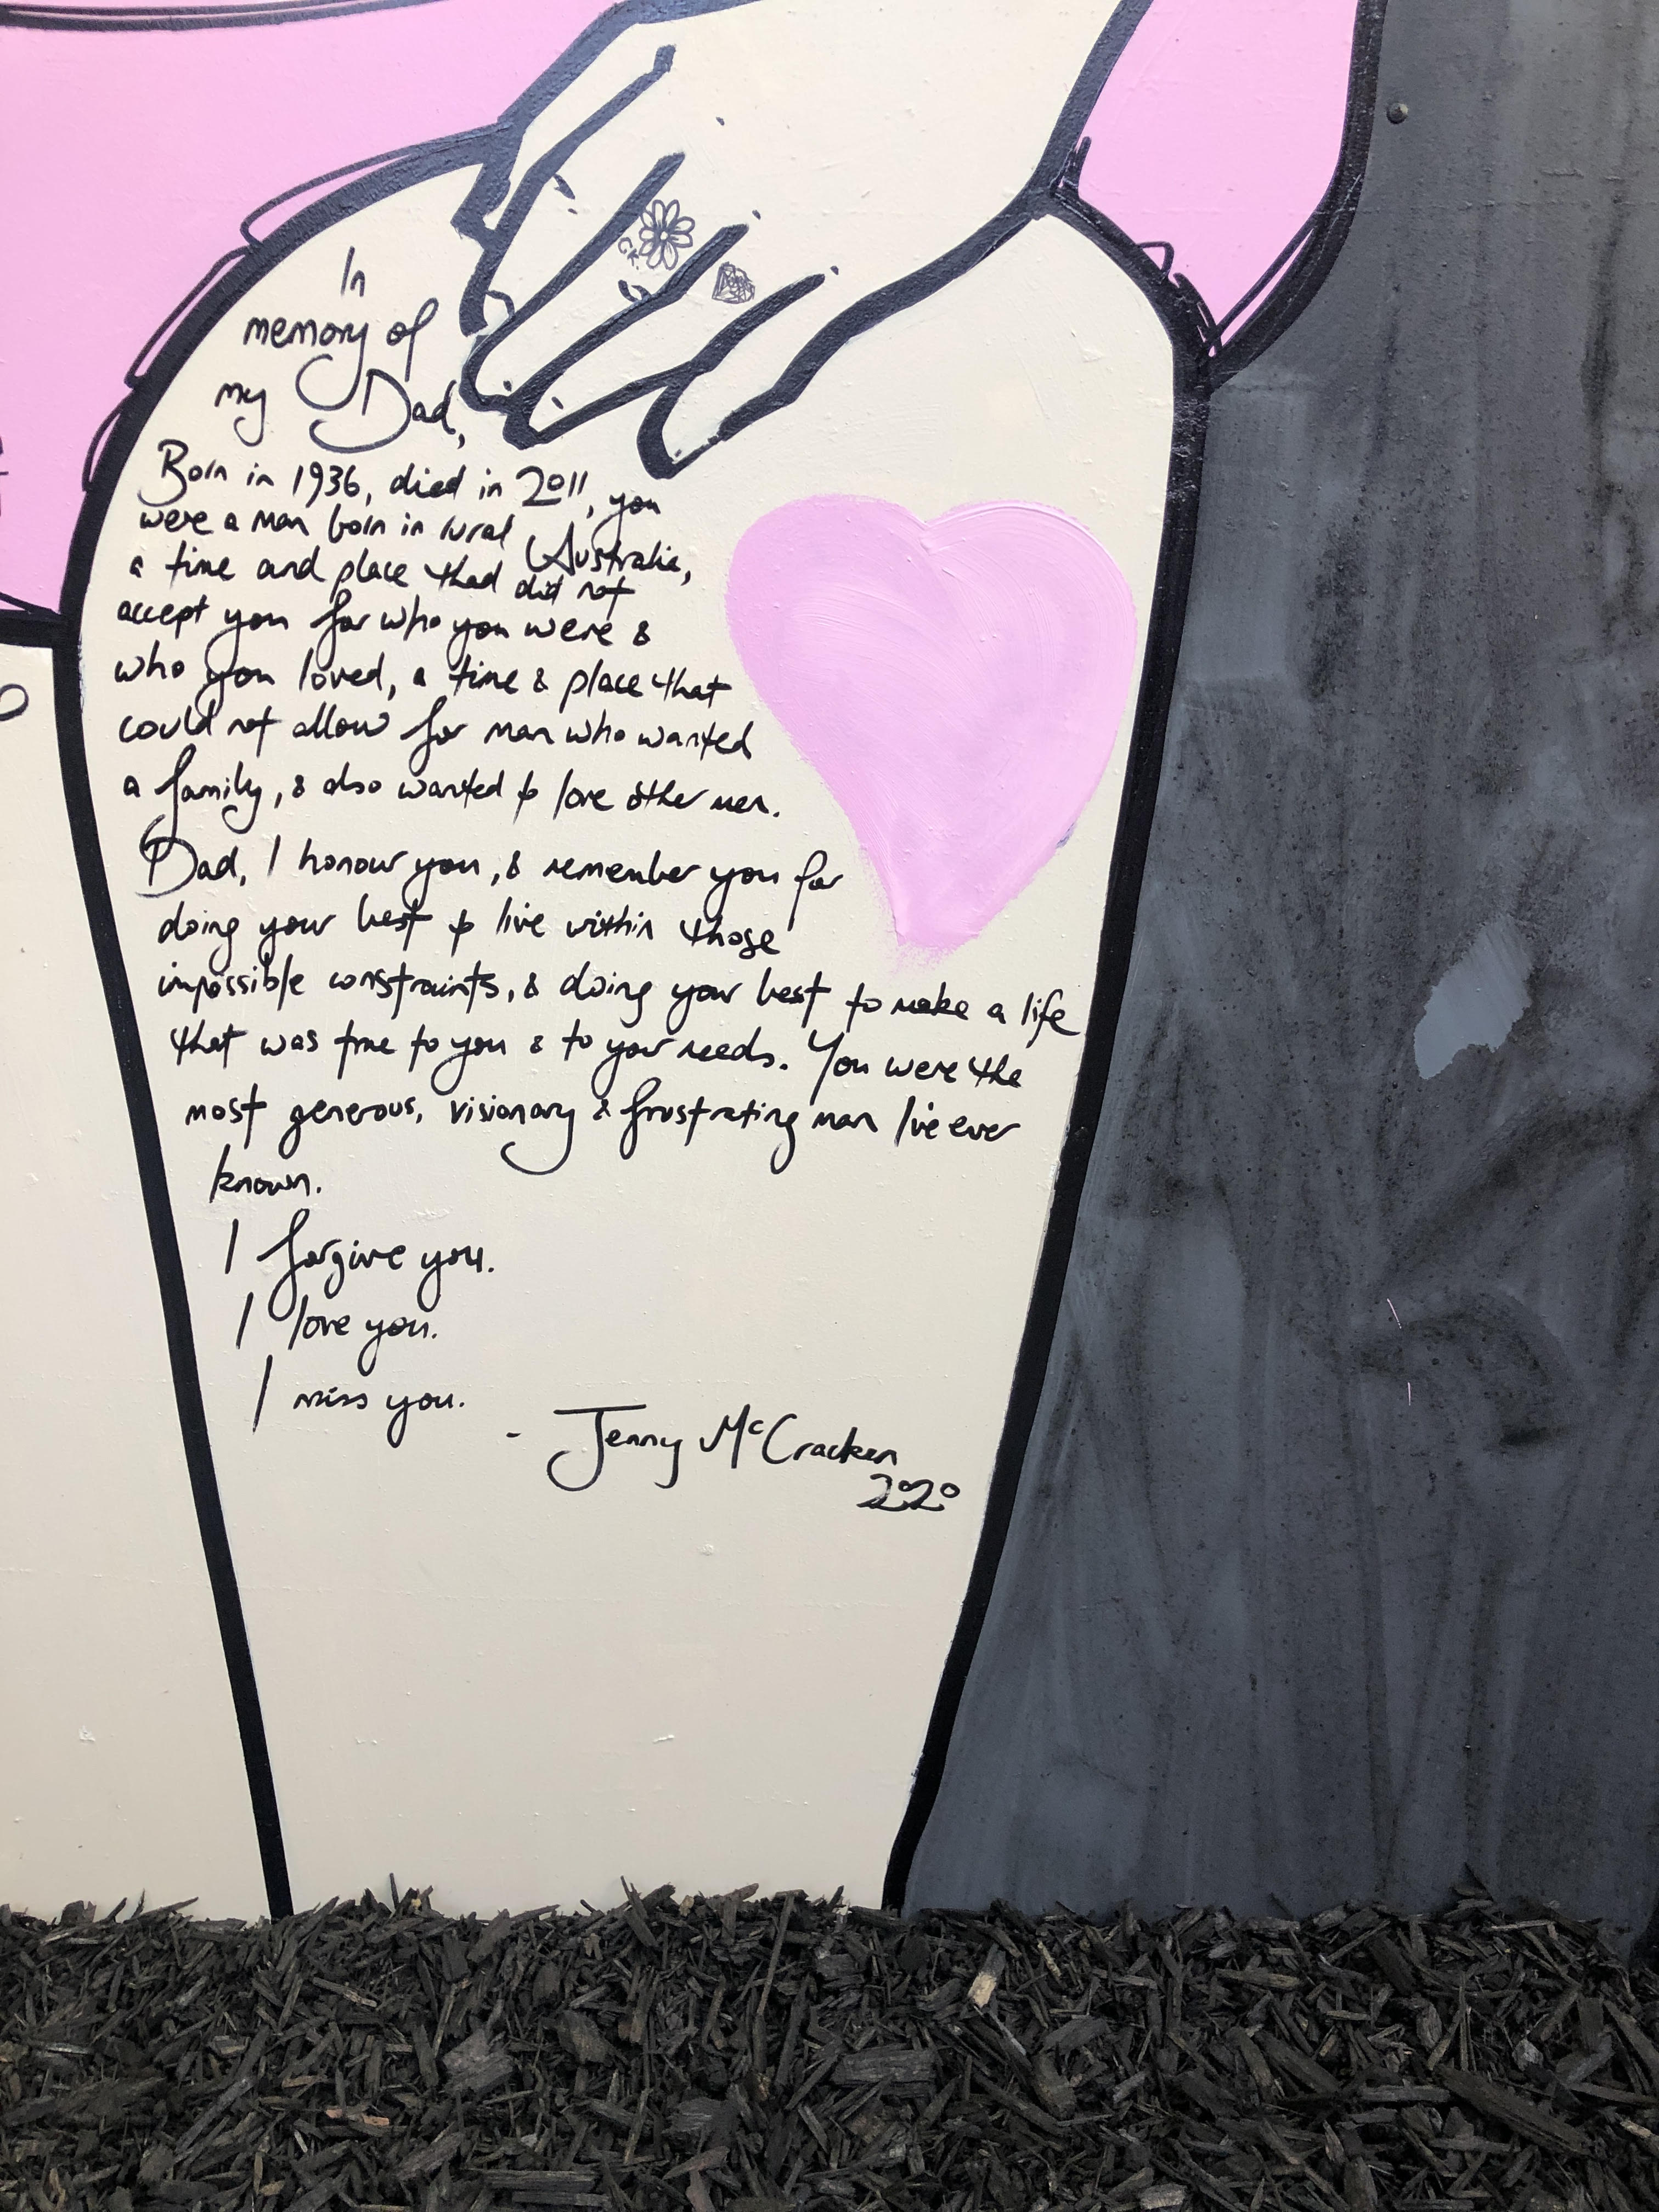 In
memory of
my Dad,
Born in 1936, died in 2011, you
were a man born in rural Australia,
a time and place thad did not
accept you for who you were &
who you loved, a time & place that
could not allow for man who wanted
a family, & also wanted to love other men.
Dad, I honour you, & remember you for
doing your best to live within those
impossible constraints, & doing your best to make a life
that was true to you & to your needs. You were the
most generous, visionary & frustrating man I've ever
known.
I forgive you.
I love you.
I miss you.
- Jenny McCracken
2020